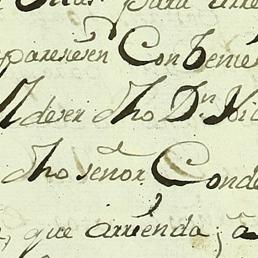 para
pareseren Conbeni
deser dho Dn
dho señor Conde
que arrienda, a